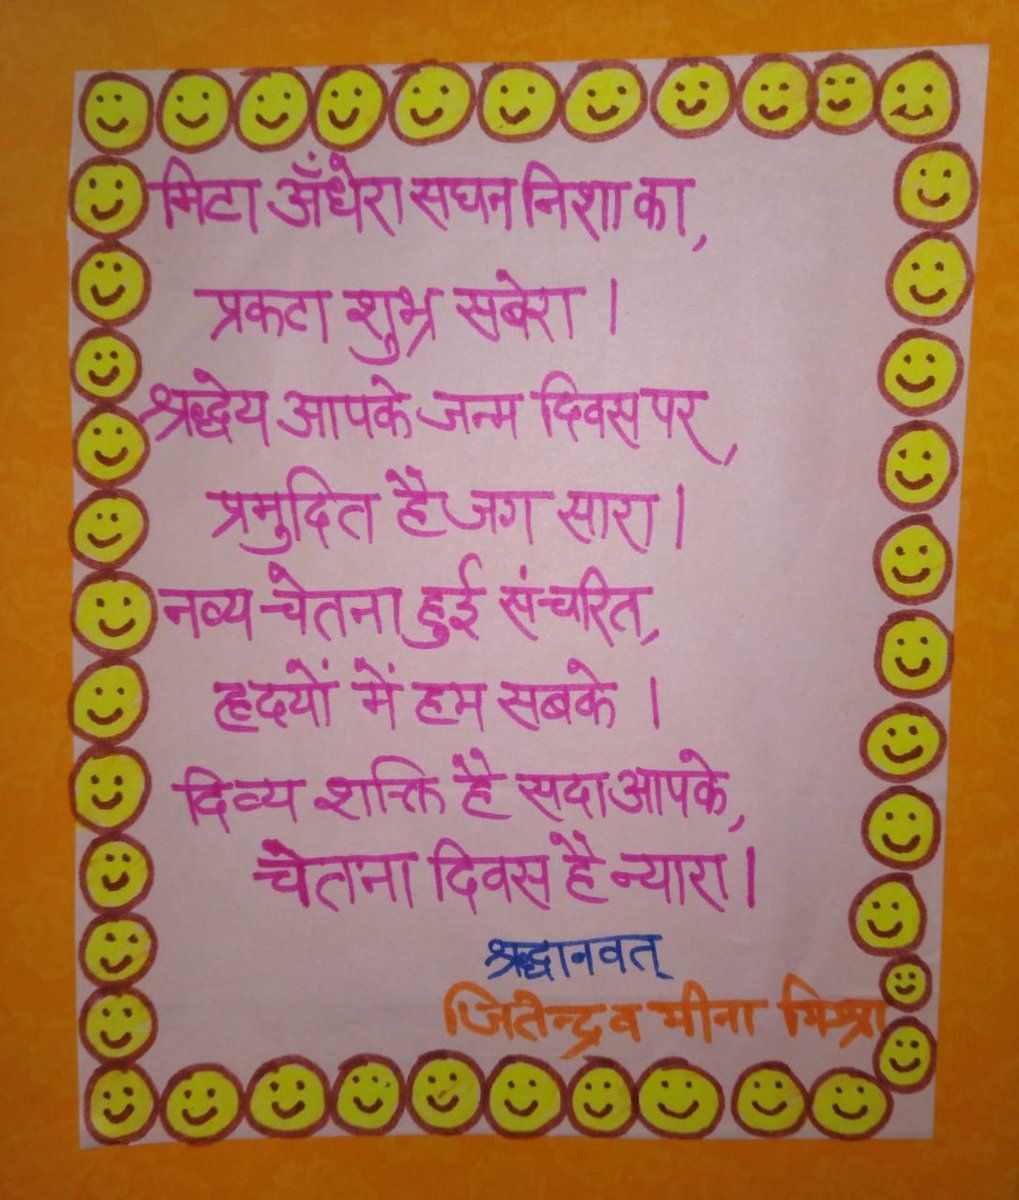 मिटा अँधेरा सघन निशा का,
प्रकटा शुभ्र सबेरा ।
श्रद्धेय आपके जन्म दिवस पर,
प्रमुदित है जग सारा ।
नव्य चेतना हुई संचरित,
हृदयों में हम सबके ।
दिव्य शक्ति है सदा आपके,
चेतना दिवस है न्यारा ।
श्रद्धानवत्
जितेन्द्र व मीना मिश्रा